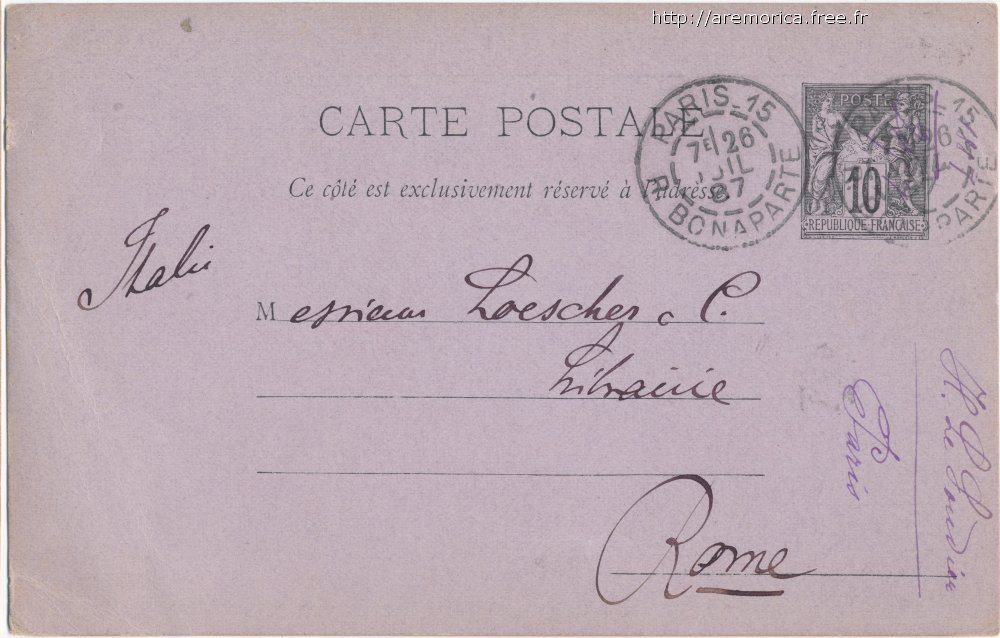 http://aremorica.free.fr
CARTE POSTALE
Ce côté est exclusivement réservé à l'adresse
PARIS_15
7E 26
JUIL
87
R. BONAPARTE
POSTE
10
REPUBLIQUE FRANÇAISE
PARIS_15
26
BONAPARTE
Italie
Messieurs Loescher & C.
Librairie
Rome
H. Le Soudier
Paris